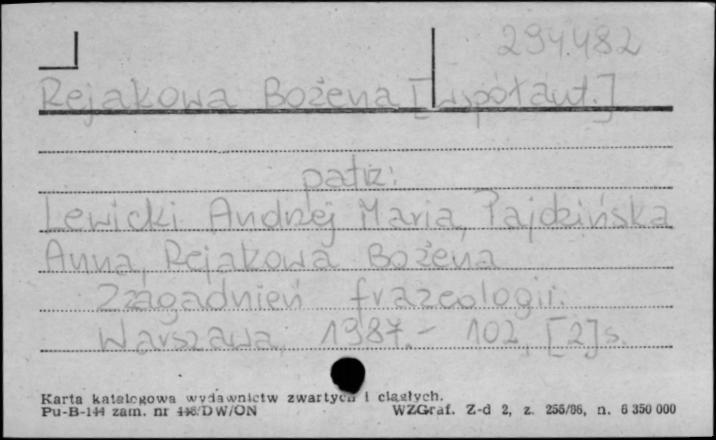 294.482
Rejakowa Bożena [współaut.]
patrz:
Lewicki Andrzej Maria, Pajdzińska
Anna, Rejakowa Bożena
Z zagadnień frazeologii.
Warszawa, 1987.- 102, [2] s.
Karta katalogowa wydawnictw zwartych i ciągłych.
Pu-B-144 zam. nr 446/DW/ON WZGraf. Z-d 2, z. 255/86, n. 6 350 000